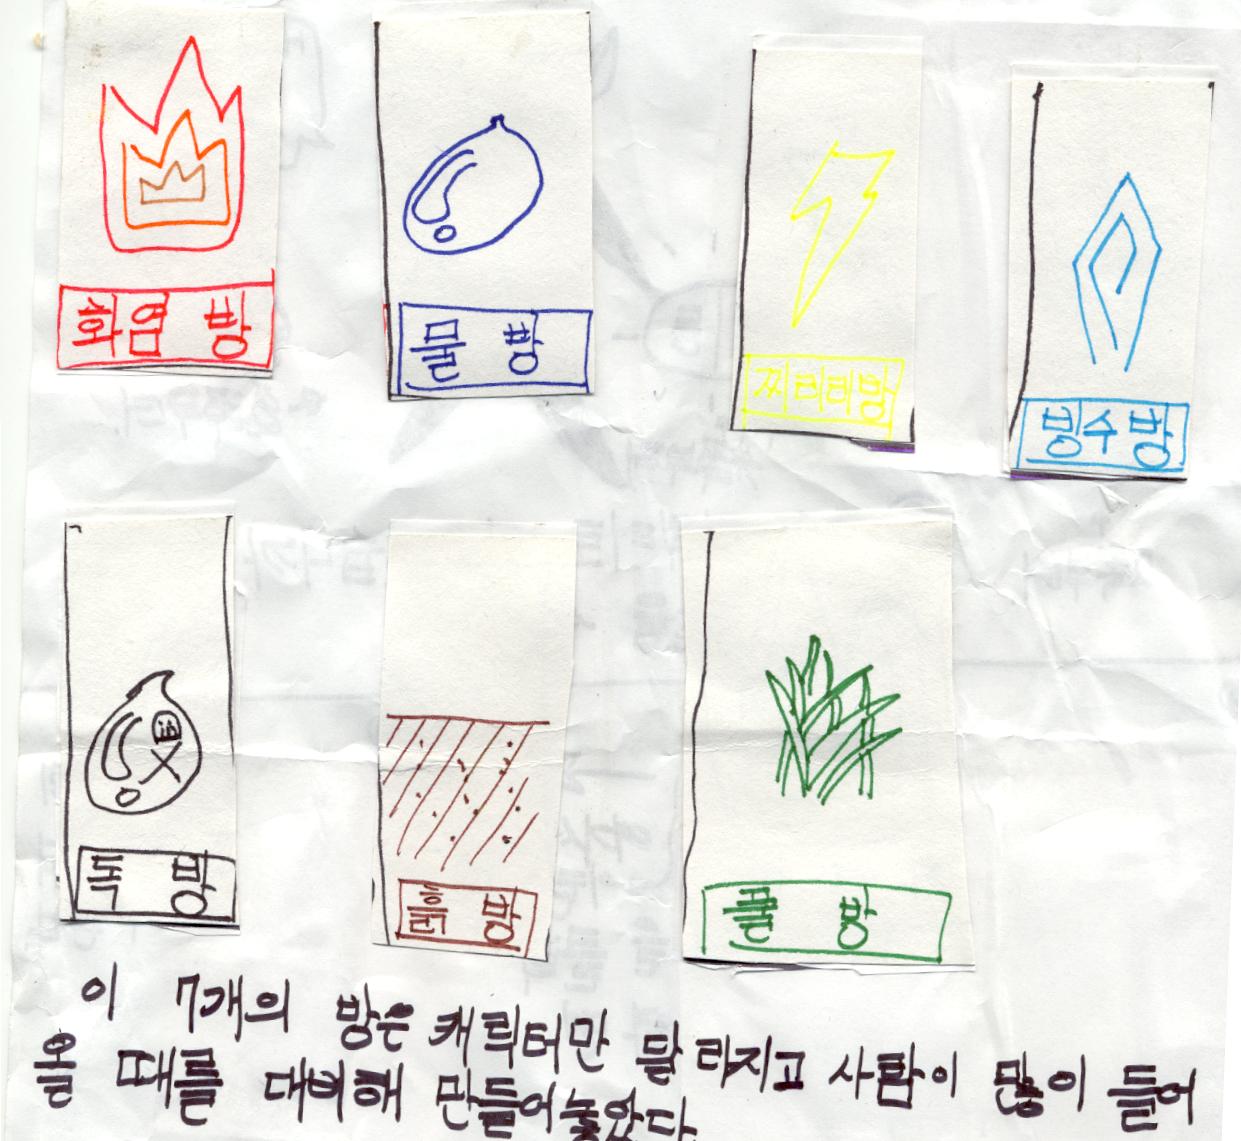 화염 방
물 방
찌리리방
빙수방
독 방
흙 방
풀 방
이 7개의 방은 캐릭터만 달라지고 사람이 많이 들어
올 때를 대비해 만들어놓았다